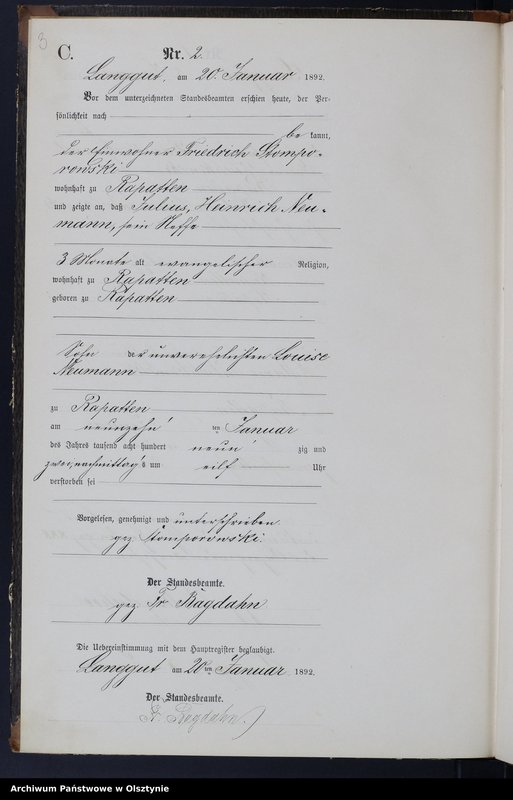 3
C. Nr. 2.
Langgut, am 20. Januar 1892.
Vor dem unterzeichneten Standesbeamten erschien heute, der Per-
sönlichkeit nach
be kannt,
der Einwohner Friedrich Stompo-
rowski
wohnhaft zu Rapatten
und zeigte an, daß Julius, Heinrich Neu-
mann, sein Neffe
3 Monate alt evangelischer Religion,
wohnhaft zu Rapatten
geboren zu Rapatten
Sohn der unverehelichten Louise
Neumann
zu Rapatten
am neunzehn ten Januar
des Jahres tausend acht hundert neun zig und
zwei, nachmittags um eilf Uhr
verstorben sei
Vorgelesen, genehmigt und unterschrieben
gez. Stomporowski.
Der Standesbeamte.
gez. Fr Bagdahn
Die Uebereinstimmung mit dem Hauptregister beglaubigt.
Langgut am 20ten Januar 1892.
Der Standesbeamte.
Fr Bagdahn.
Archiwum Państwowe w Olsztynie